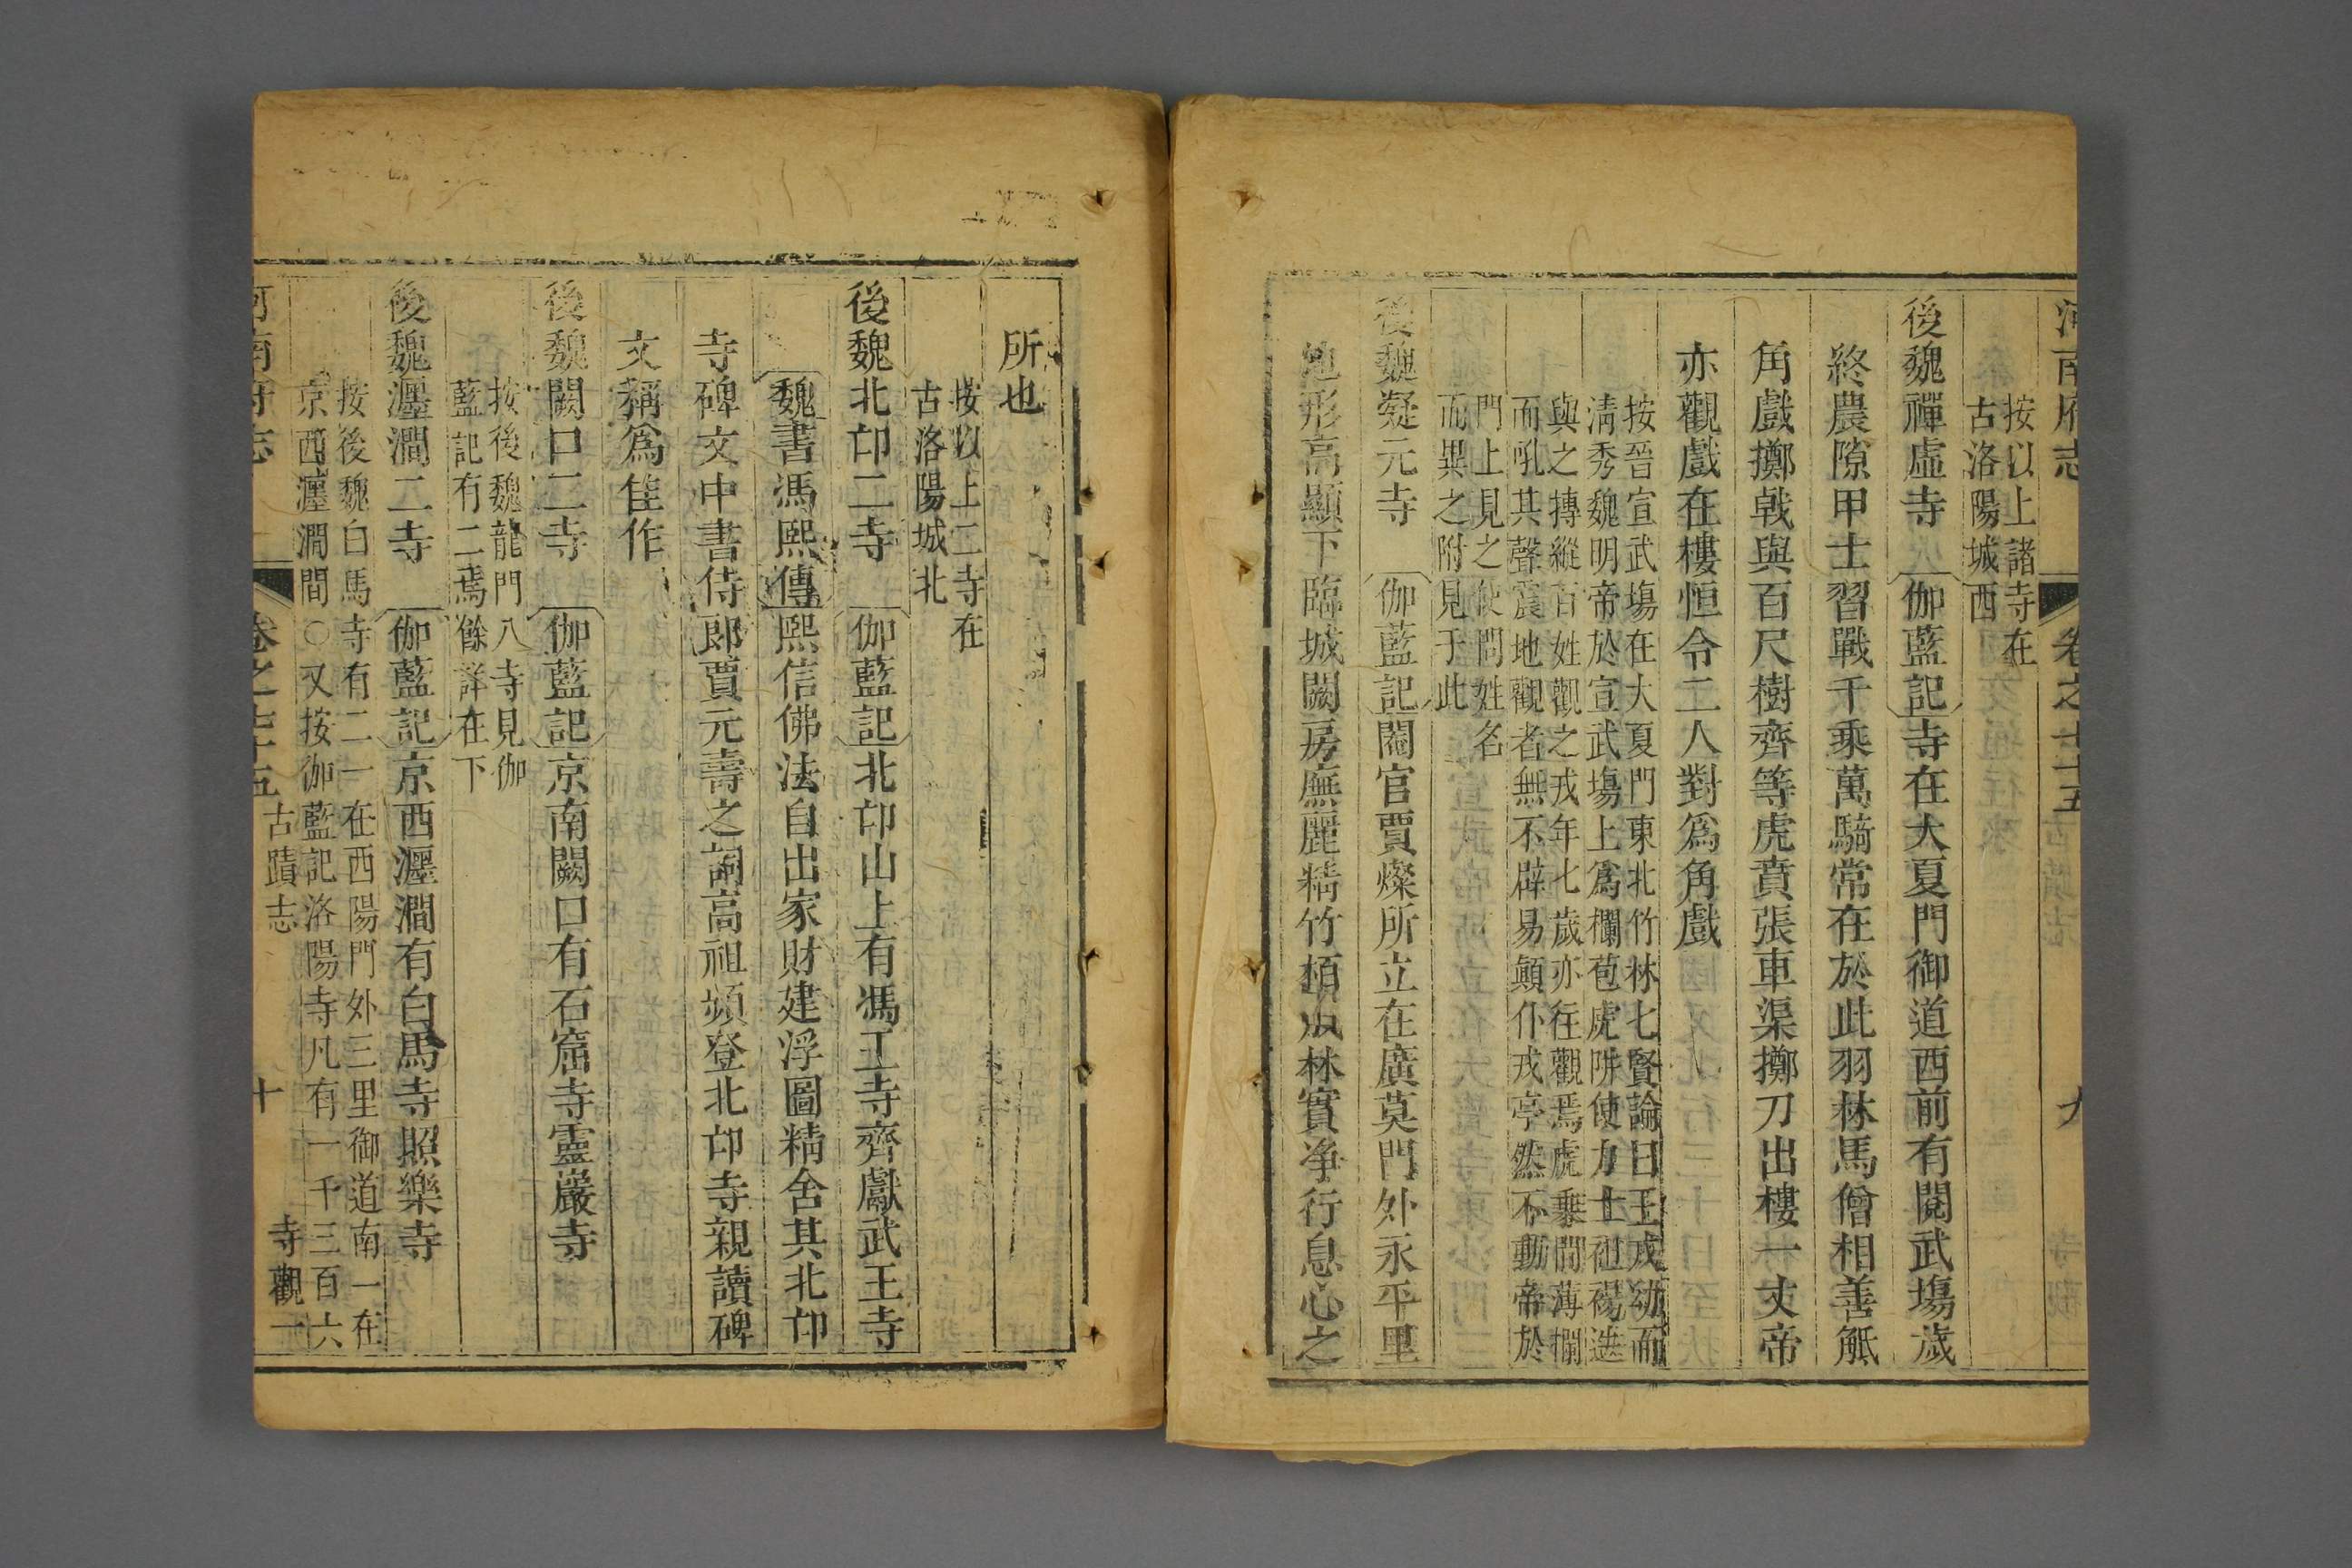 河南府志 卷之七十五 九
按以上諸寺在
古洛陽城西
後魏禪虛寺 伽藍記寺在大夏門御道西前有閱武塲歲
終農隙甲士習戰千乘萬騎常在於此羽林馬僧相善觝
角戲擲戟與百尺樹齊等虎賁張車渠擲刀出樓一丈帝
亦觀戲在樓恒令二人對爲角戲
按晉宣武塲在大夏門東北竹林七賢論曰王戎幼而
淸秀魏明帝於宣武塲上爲欄苞虎阱使力士袒裼迭
與之摶縱百姓觀之戎年七歲亦往觀焉虎乘間薄欄
而吼其聲震地觀者無不辟易顚仆戎亭然不動帝於
門上見之使問姓名
而異之附見于此
後魏凝元寺 伽藍記閹官賈燦所立在廣莫門外永平里
地形高顯下臨城闕房廡麗精竹栢成林實净行息心之
所也
按以上二寺在
古洛陽城北
後魏北邙二寺 伽藍記北邙山上有馮王寺齊獻武王寺
魏書馮熙傳熙信佛法自出家財建浮圖精舍其北邙
寺碑文中書侍郎賈元壽之詞高祖頻登北邙寺親讀碑
文稱爲佳作
後魏闕口二寺 伽藍記京南闕口有石窟寺靈巖寺
按後魏龍門八寺見伽
藍記有二焉餘詳在下
後魏瀍澗二寺 伽藍記京西瀍澗有白馬寺照樂寺
按後魏白馬寺有二一在西陽門外三里御道南一在
京西瀍澗間○又按伽藍記洛陽寺凡有一千三百六
河南府志 卷之七十五 古蹟志 十 寺觀一